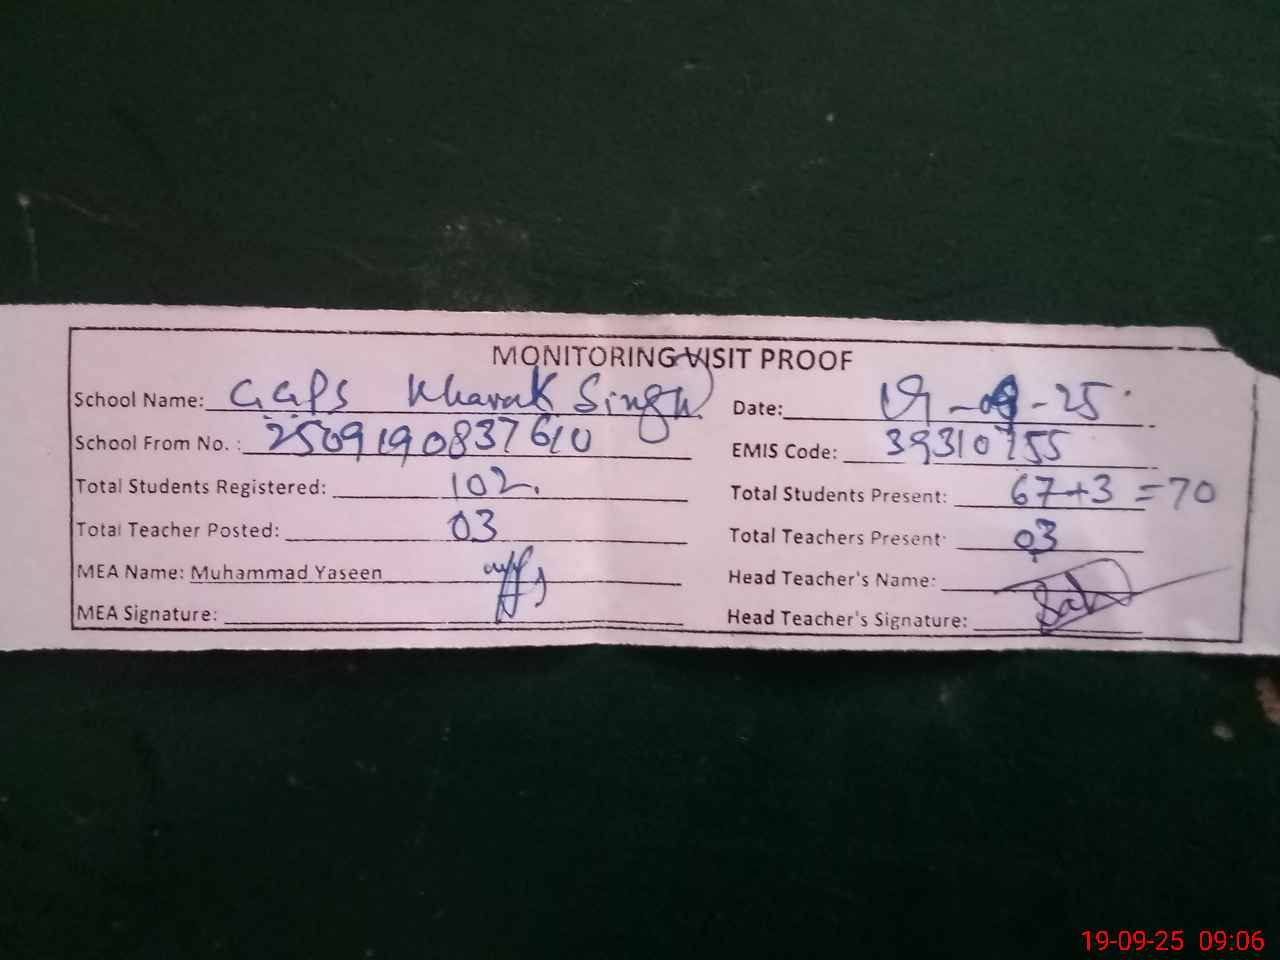 MONITORING VISIT PROOF
School Name: GGPS Kharak Singh Date: 19-09-25
School From No. : 2509190837610 EMIS Code: 39310755
Total Students Registered: 102. Total Students Present: 67+3 = 70
Total Teacher Posted: 03 Total Teachers Present: 03
MEA Name: Muhammad Yaseen Head Teacher's Name:
MEA Signature: Head Teacher's Signature:
19-09-25 09:06